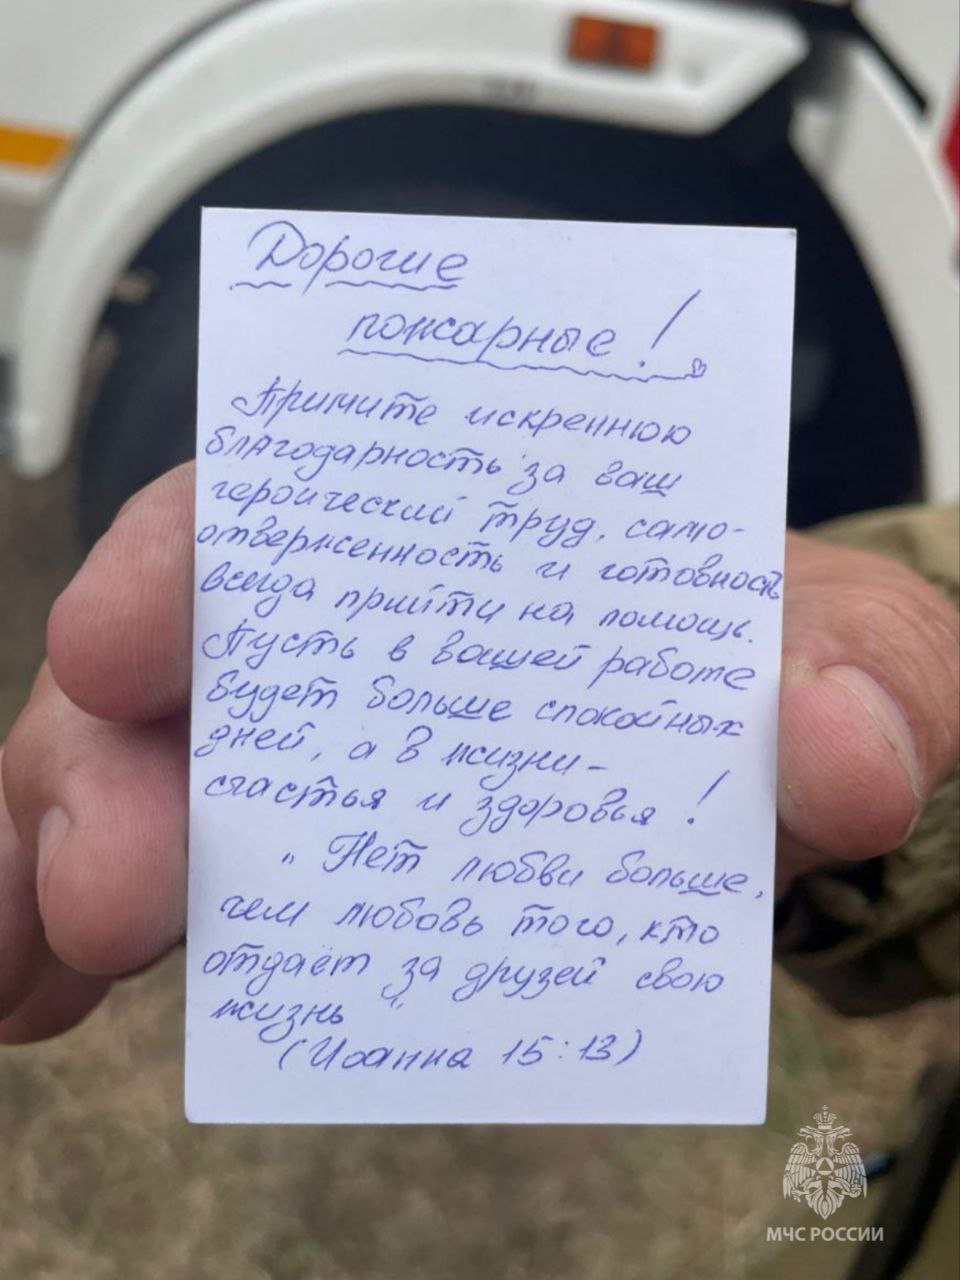 Дорогие
пожарные!
Примите искреннюю
благодарность за ваш
героический труд, само-
отверженность и готовность
всегда прийти на помощь.
Пусть в вашей работе
будет больше спокойных
дней, а в жизни -
счастья и здоровья!
"Нет любви больше,
чем любовь того, кто
отдаёт за друзей свою
жизнь"
(Иоанна 15:13)
МЧС РОССИИ